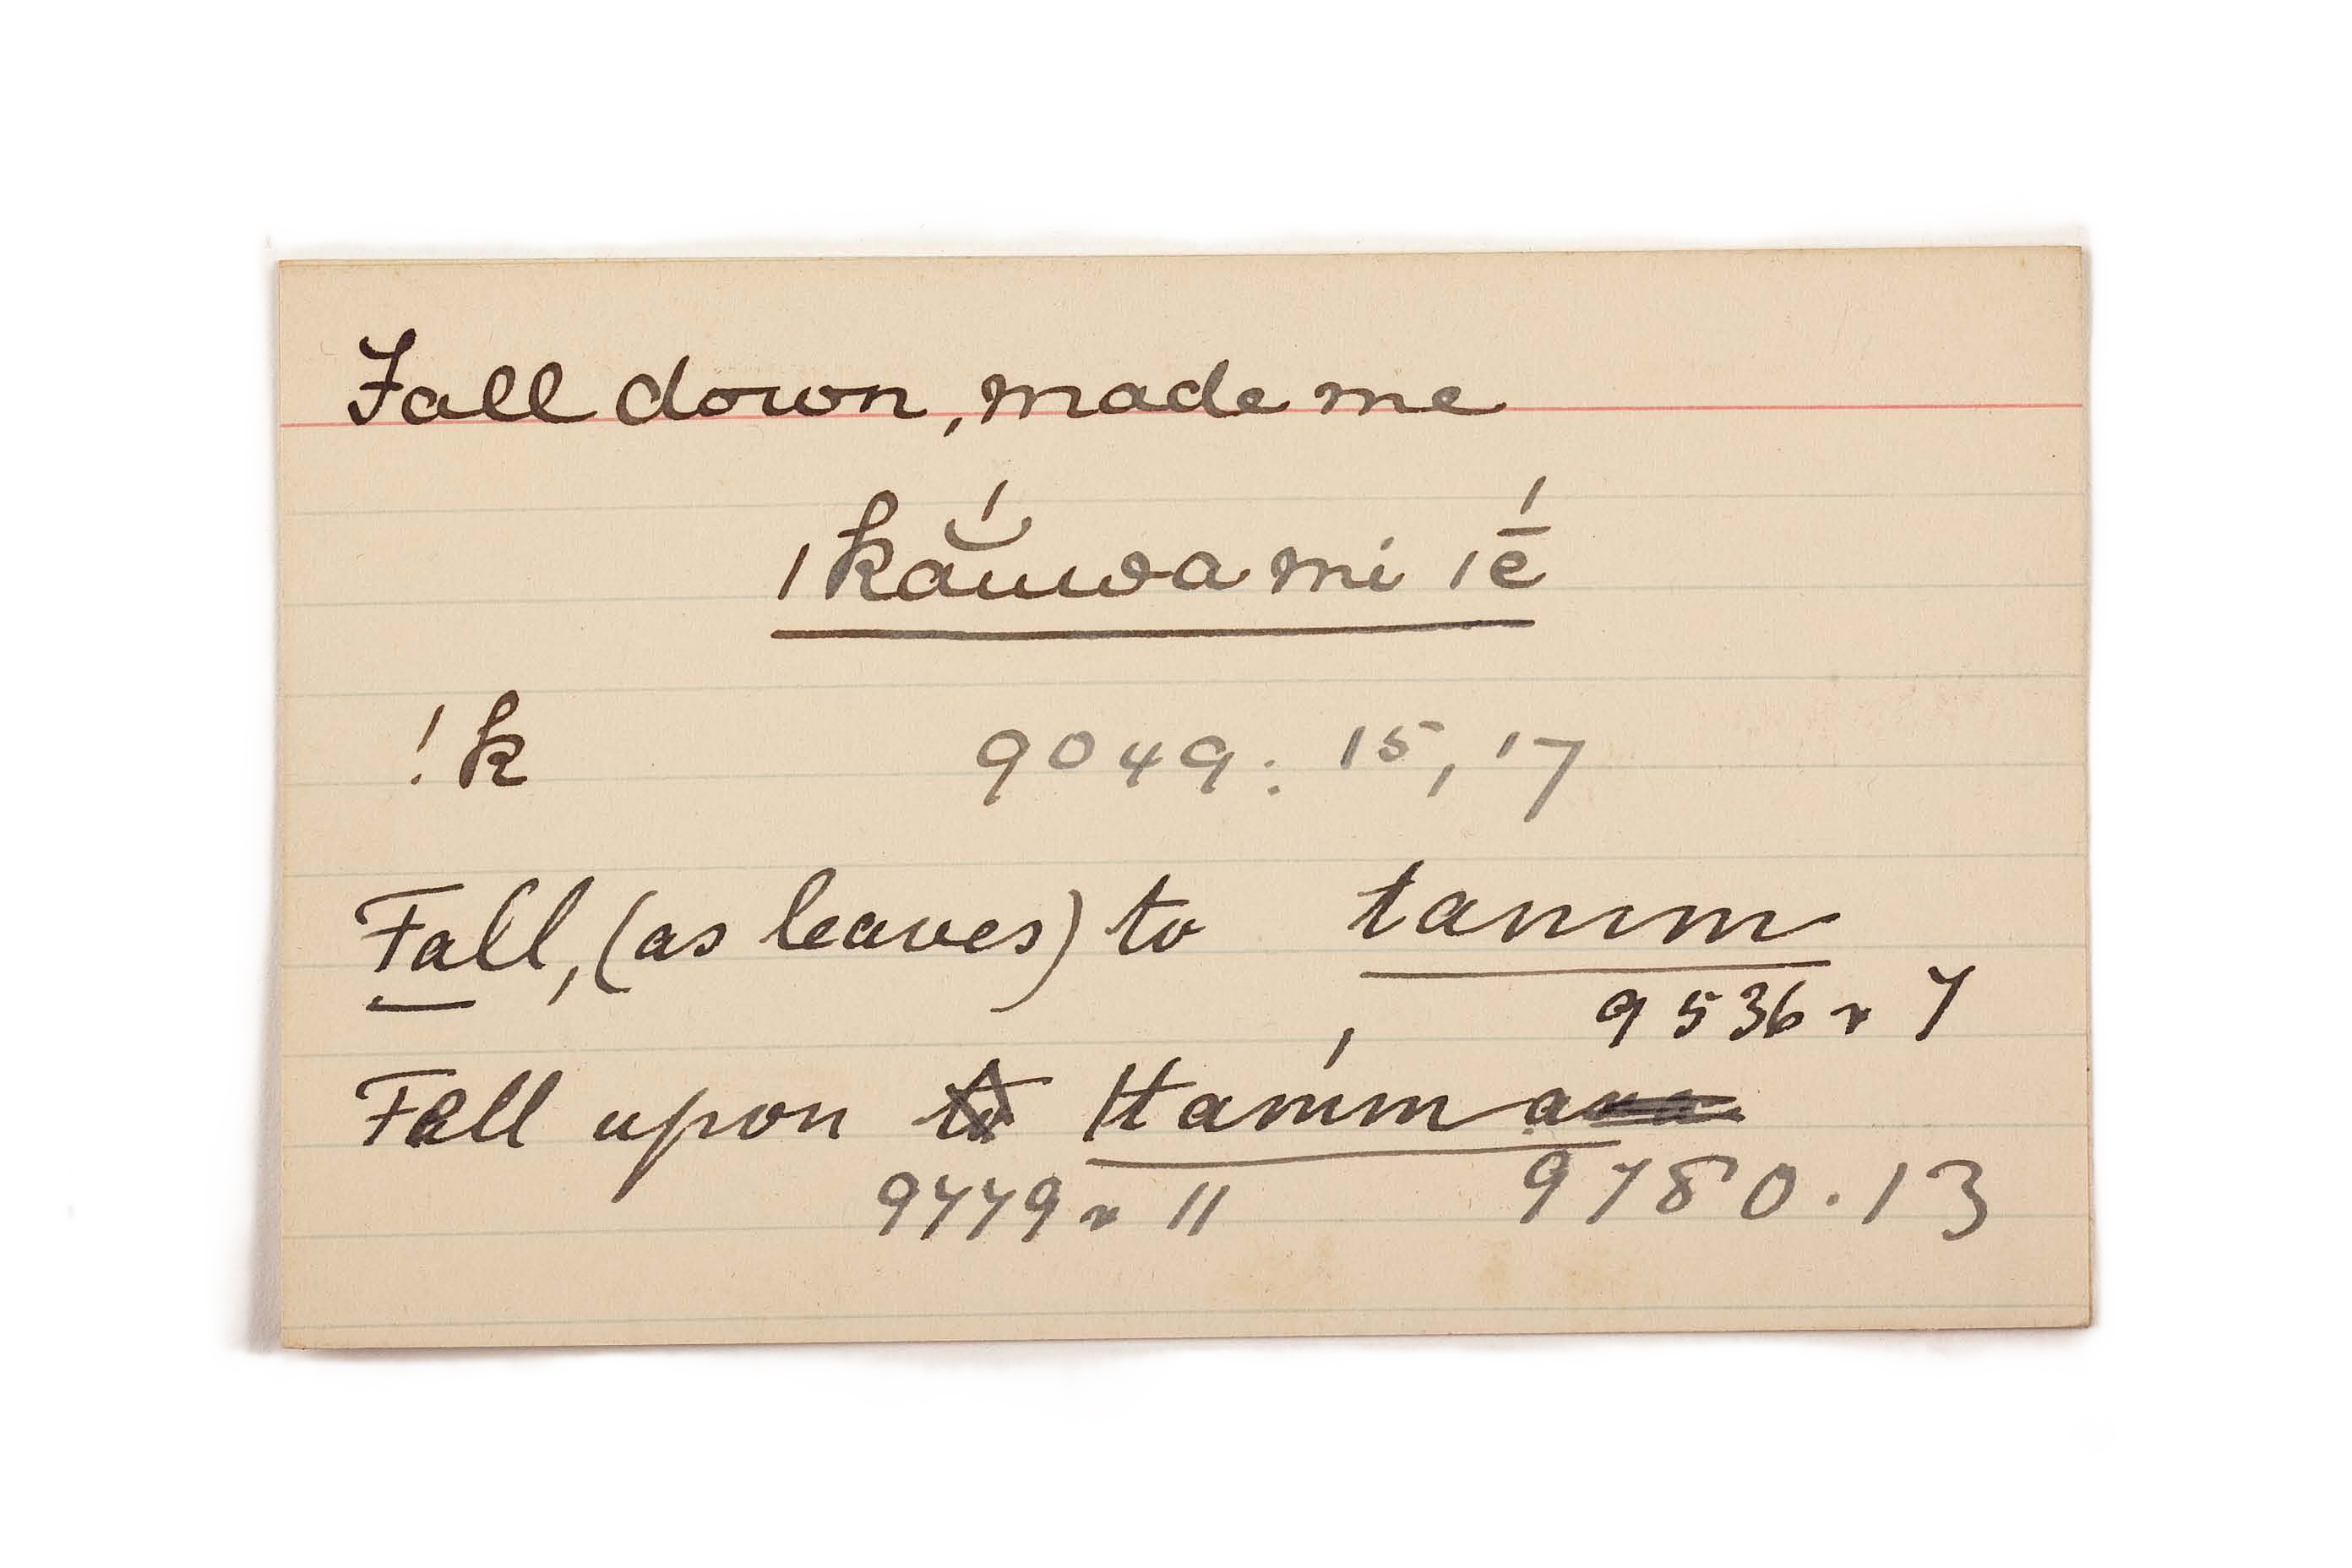 Fall down, made me
ǀkaŭ́wa mi ǀḗ
!k 9049: 15, 17
Fall, (as leaves) to tamm
9536 r 7
Fall upon ǀtamḿ a
9779 r 11 9780.13